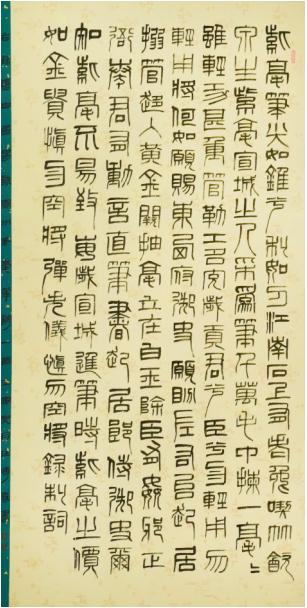 紫毫筆尖如錐兮利如刀江南石上有老兔喫竹飲
泉生紫毫宣城之人采為筆千萬毛中揀一毫〻
雖輕功甚重管勒工名充歲貢君兮臣兮勿輕用勿
輕用將何如願賜東西府御史願頒左右台起居
搦管趨入黃金闕抽毫立在白玉除臣有姦邪正
衙奏君有動言直筆書起居郎侍御史爾
知紫毫不易致每歲宣城進筆時紫毫之價
如金貴慎勿空將彈失儀慎勿空將錄制詞